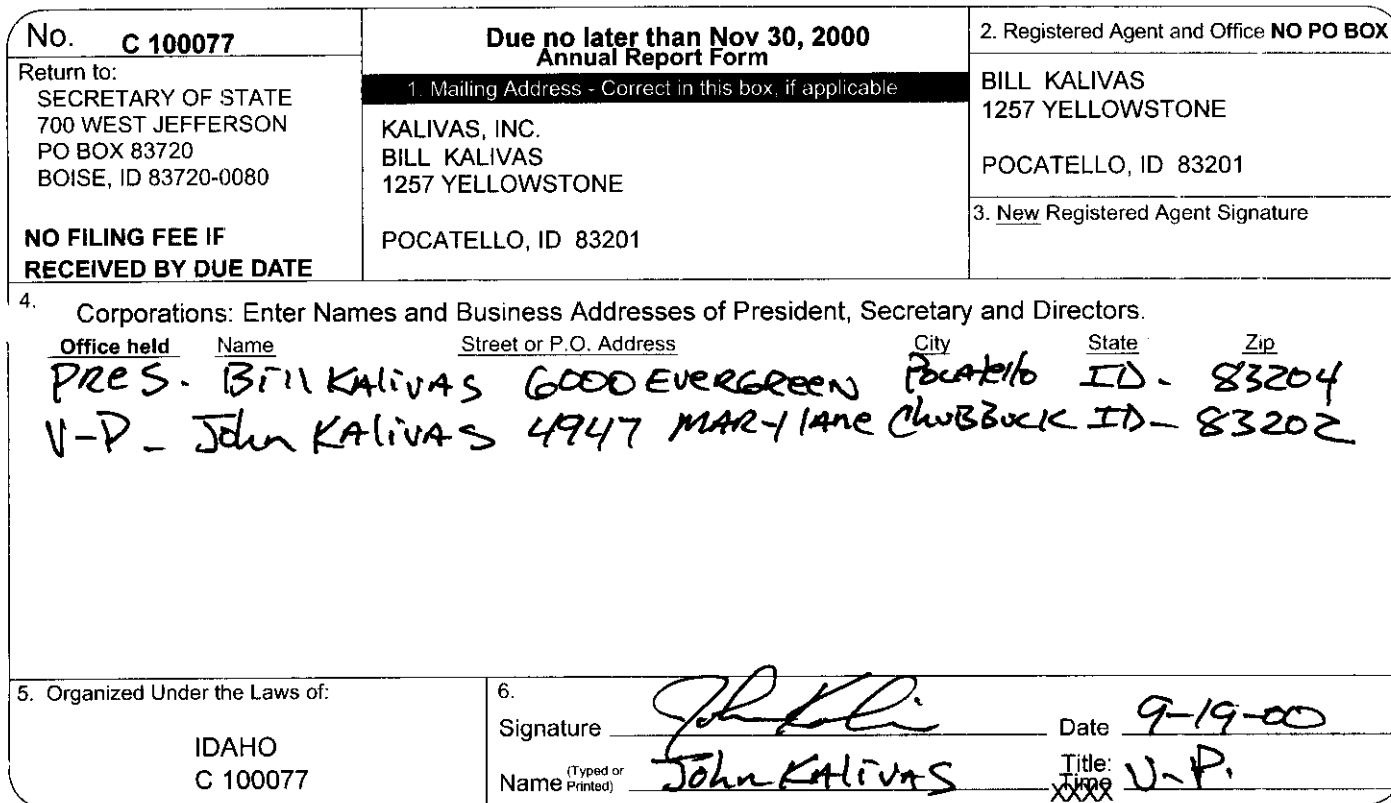 No. C 100077
Return to:
SECRETARY OF STATE
700 WEST JEFFERSON
PO BOX 83720
BOISE, ID 83720-0080
NO FILING FEE IF
RECEIVED BY DUE DATE
Due no later than Nov 30, 2000
Annual Report Form
1. Mailing Address - Correct in this box, if applicable
KALIVAS, INC.
BILL KALIVAS
1257 YELLOWSTONE
POCATELLO, ID 83201
2. Registered Agent and Office NO PO BOX
BILL KALIVAS
1257 YELLOWSTONE
POCATELLO, ID 83201
3. New Registered Agent Signature
4. Corporations: Enter Names and Business Addresses of President, Secretary and Directors.
Office held Name Street or P.O. Address City State Zip
PRES. Bill KALIVAS 6000 EVERGREEN Pocatello ID- 83204
V-P- John KALIVAS 4947 MAR-Y lANe ChuBBUCK ID- 83202
5. Organized Under the Laws of:
IDAHO
C 100077
6.
Signature John Kali Date 9-19-00
Name (Typed or Printed) John KALIVAS Title: V-P.
Time
XXXX